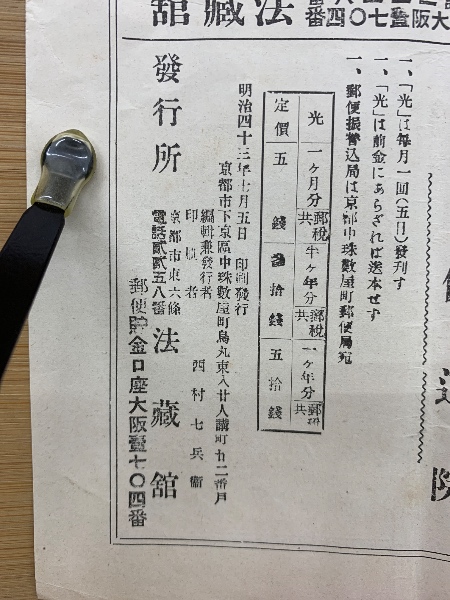 法藏館
大阪壹七〇四番
一、「光」は每月一回(五日)發刊す
一、「光」は前金にあらざれば送本せず
一、郵便振替込局は京都中珠數屋町郵便局宛
光 一ケ月分郵稅共 半ケ年分郵稅共 一ケ年分郵稅共
定價 五錢 貳拾錢 五拾錢
明治四十三年七月五日 印刷發行
京都市下京區中珠數屋町烏丸東入廿人講町廿二番戶
編輯兼發行者
印刷者
西村七兵衞
京都市東六條
發行所 法藏館
電話貳貳五八番
郵便貯金口座大阪壹七〇四番